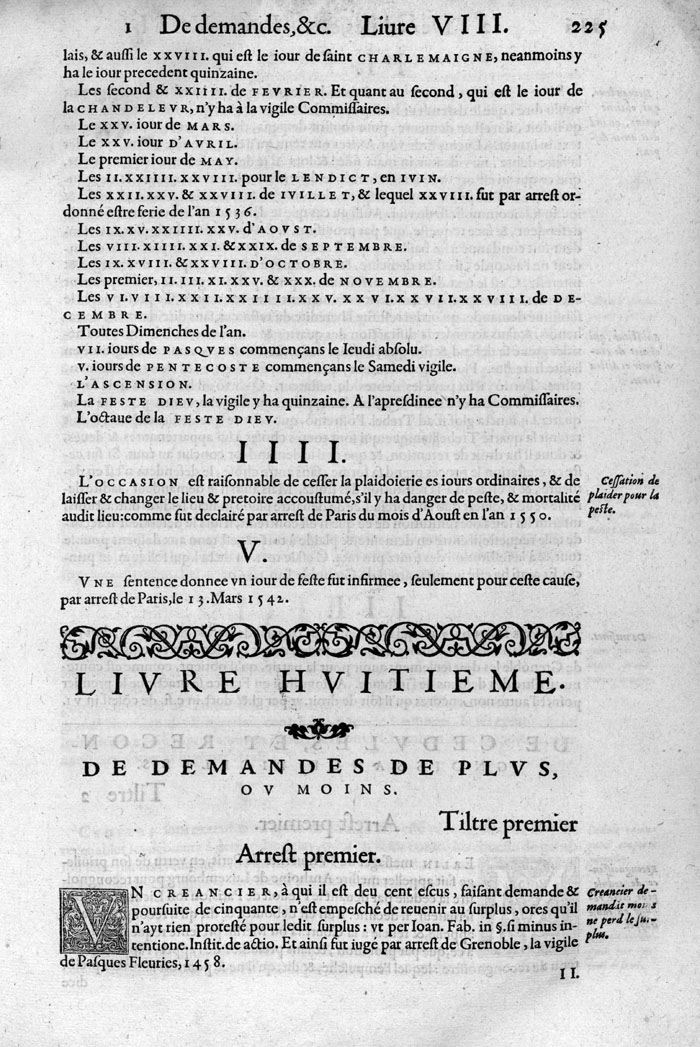 1 De demandes, &c. Liure VIII. 225
lais, & auſſi le XXVIII. qui eſt le iour de ſaint CHARLEMAIGNE, neanmoins y
ha le iour precedent quinzaine.
Les ſecond & XXIIII. de FEVRIER. Et quant au ſecond, qui eſt le iour de
la CHANDELEVR, n'y ha à la vigile Commiſſaires.
Le XXV. iour de MARS.
Le XXV. iour D'AVRIL.
Le premier iour de MAY.
Les II. XXIIII. XXVIII. pour le LENDICT, en IVIN.
Les XXII. XXV. & XXVIII. de IVILLET, & lequel XXVIII. fut par arreſt or-
donné eſtre ferie de l'an 1536.
Les IX. XV. XXIIII. XXV. d'AOVST.
Les VIII. XIIII. XXI. & XXIX. de SEPTEMBRE.
Les IX. XVIII. & XXVIII. D'OCTOBRE.
Les premier, II. III. XI. XXV. & XXX. de NOVEMBRE.
Les VI. VIII. XXI. XXII. XXIIII. XXV. XXVI. XXVII. XXVIII. de DE-
CEMBRE.
Toutes Dimenches de l'an.
VII. iours de PASQVES commençans le Ieudi abſolu.
V. iours de PENTECOSTE commençans le Samedi vigile.
L'ASCENSION.
La FESTE DIEV, la vigile y ha quinzaine. A l'apreſdinee n'y ha Commiſſaires.
L'octaue de la FESTE DIEV.
IIII.
L'OCCASION eſt raiſonnable de ceſſer la plaidoierie es iours ordinaires, & de
laiſſer & changer le lieu & pretoire accouſtumé, s'il y ha danger de peſte, & mortalité
audit lieu: comme fut declairé par arreſt de Paris du mois d'Aouſt en l'an 1550.
Ceſſation de
plaider pour la
peſte.
V.
VNE ſentence donnee vn iour de feſte fut infirmee, ſeulement pour ceſte cauſe,
par arreſt de Paris, le 13. Mars 1542.
LIVRE HVITIEME.
DE DEMANDES DE PLVS,
OV MOINS.
Tiltre premier
Arreſt premier.
VN CREANCIER, à qui il eſt deu cent eſcus, faiſant demande &
pourſuite de cinquante, n'eſt empeſché de reuenir au ſurplus, ores qu'il
n'ayt rien proteſté pour ledit ſurplus: vt per Ioan. Fab. in §. ſi minus in-
tentione. Inſtit. de actio. Et ainſi fut iugé par arreſt de Grenoble, la vigile
de Paſques Fleuries, 1458.
Creancier de-
mandāt moīs
ne perd le ſur-
plus.
II.